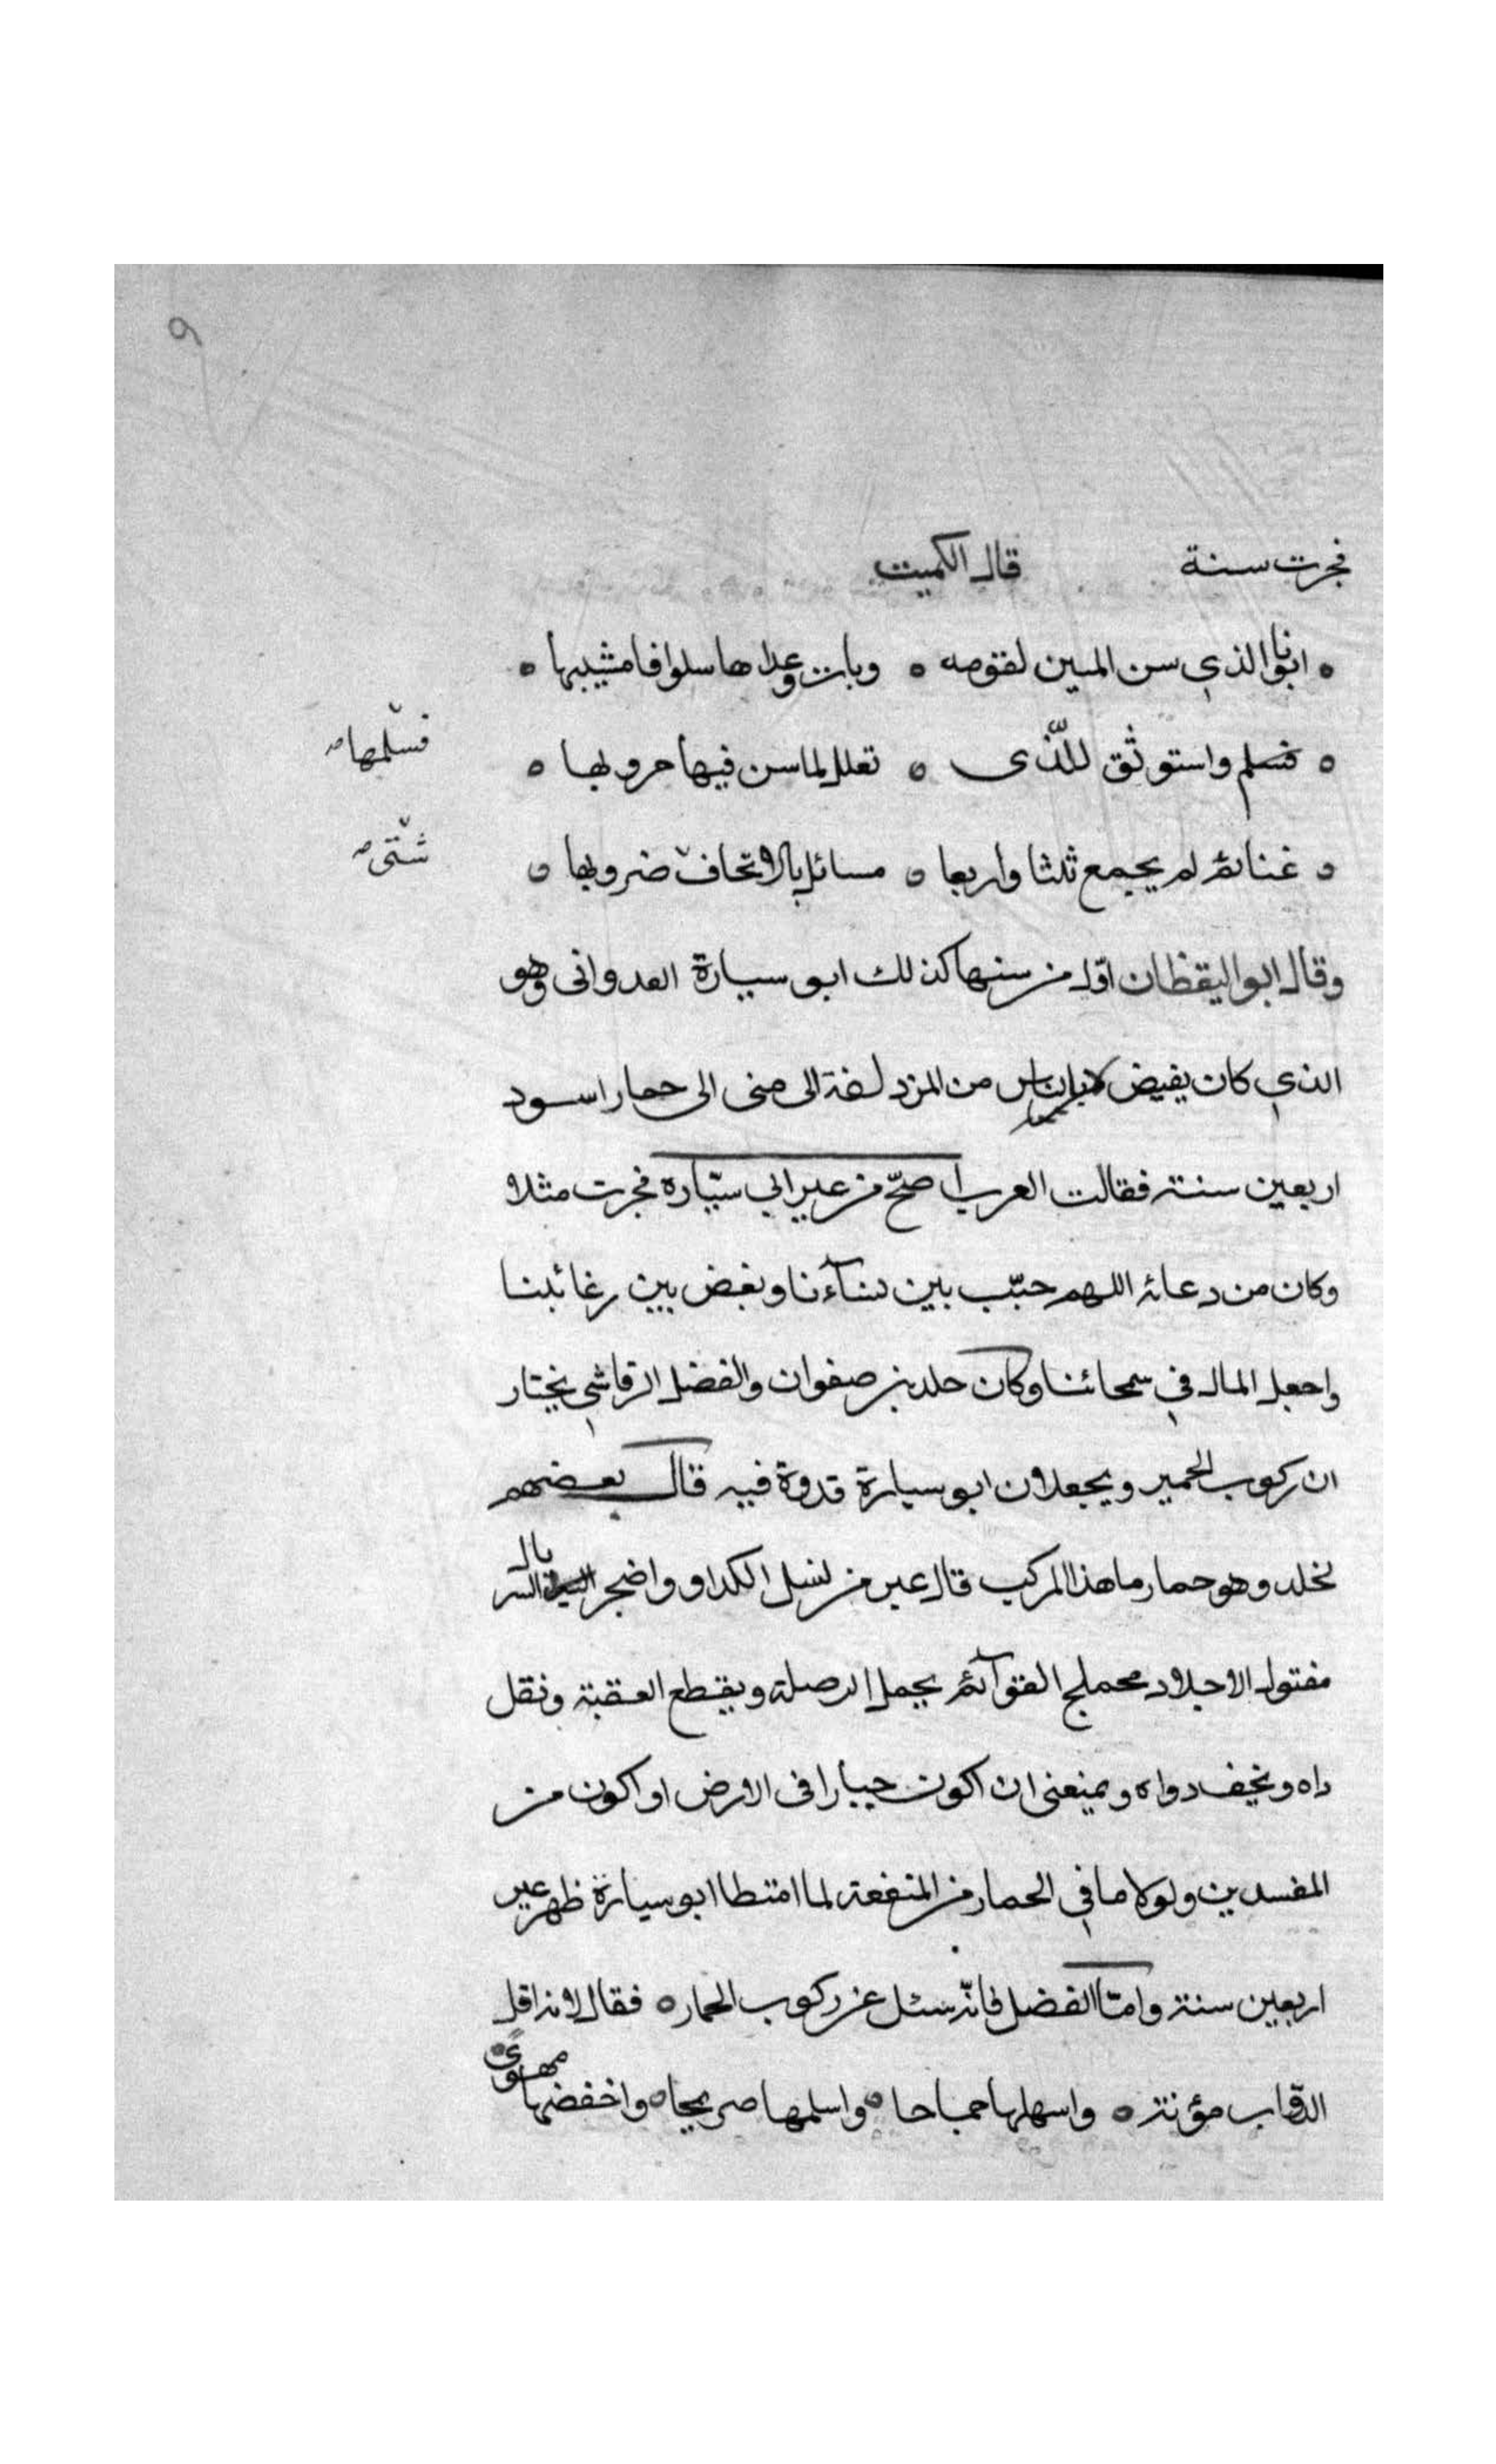 ٩
فجرت سنة قال الكميت
ه ابونا الذي سن المين لقومه ه وبات وعداها سلوا فامشيبها ه
فسلمها صح
ه فسلم واستوثق للذى ه تعلل لما سن فيها حروبها ه
شتى صح
ه غنائم لم يجمع ثلثا واربعا ه مسائل بالاتحاف ضروبها ه
وقال ابو اليقظان اوّل من سنها كذلك ابو سيارة العدوانى وهو
الذي كان يفيض بالناس من المزدلفة الى منى الى حمار اسود
اربعين سنة فقالت العرب اصحّ من عير ابي سيّاره فجرت مثلا
وكان من دعائه اللهم حبّب بين نسآءنا وبغض بين رغائبنا
واجعل المال في سمحائنا وكان خلد بن صفوان والفضل الرقاشي يختار
ان ركوب الحمير ويجعلان ابو سيارة قدوة فيه قال بعضهم
لخلد وهو حمار ما هذا المركب قال عير من نسل الكداو واضجر بال السر
مفتول الاجلاد محملج القوآئم يحمل الرحلة ويقطع العقبة ونقل
داه ويخف دواه ويمنعنى ان اكون جبارا فى الارض او اكون من
المفسدين ولولا ما في الحمار من المنفعة لما امتطا ابو سيارة ظهر عير
اربعين سنة وامّا الفضل فانّه سئل عن ركوب الحمار ه فقال لانه اقل
الدّواب مؤنة ه واسهلها جماحا ه واسلمها صريحا ه واخفضها مهوى